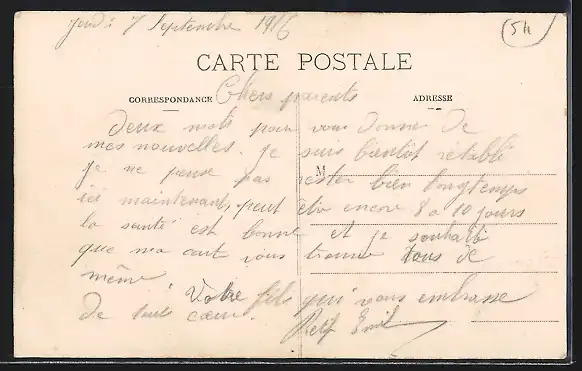 jeudi 7 Septembre 1916
54
CARTE POSTALE
CORRESPONDANCE
ADRESSE
Chers parents
Deux mots pour vous donner de
mes nouvelles. je suis bientôt rétabli
je ne pense pas rester bien longtemps
M
ici maintenant, peut etre encore 8 a 10 jours
la santé est bonne et je souhaite
que ma carte vous trouve tous de
même. Votre fils qui vous embrasse
de tout cœur. Emil